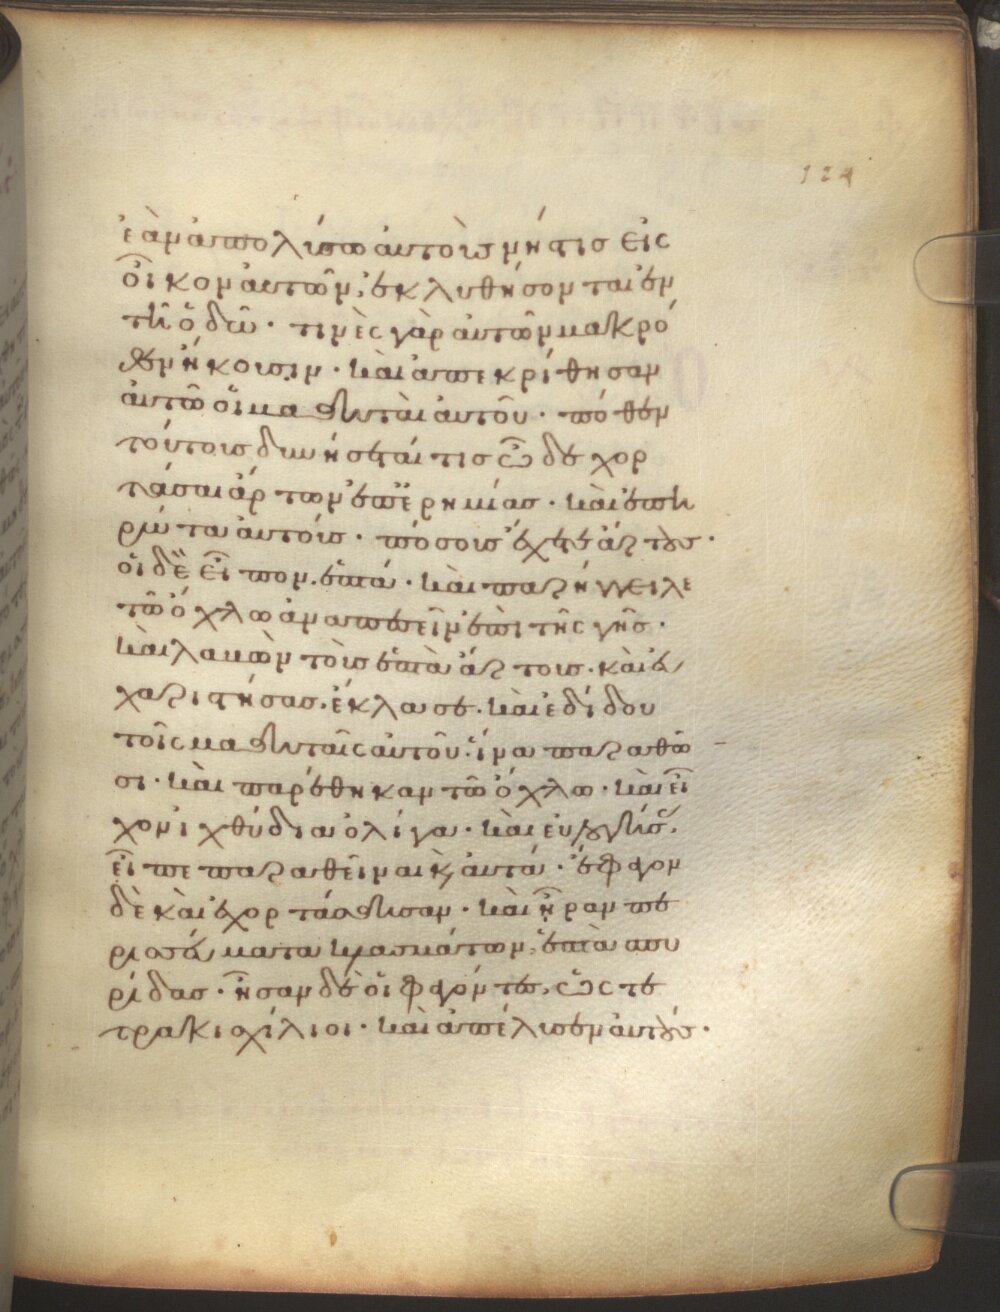 124
ἐὰν ἀπολύσω αὐτοὺς νήστις εἰς
οἶκον αὐτῶν, ἐκλυθήσονται ἐν
τῆ ὁδῶ· τινὲς γὰρ αὐτῶν μακρό
θεν ἥκουσιν· καὶ ἀπεκρίθησαν
αὐτῶ οἱ μαθηταὶ αὐτοῦ· πόθεν
τούτους δυνήσεταί τις ὧδε χορ
τάσαι ἄρτων ἐπ' ἐρημίας· καὶ ἐπη
ρώτα αὐτούς· πόσους ἔχετε ἄρτους·
οἱ δὲ εἶπον, ἑπτά· καὶ παρήγγειλε
τῶ ὄχλω ἀναπεσεῖν ἐπὶ τῆς γῆς·
καὶ λαβὼν τοὺς ἑπτὰ ἄρτους· καὶ εὐ
χαριστήσας, ἔκλασε· καὶ ἐδίδου
τοῖς μαθηταῖς αὐτοῦ· ἵνα παραθῶ
σι· καὶ παρέθηκαν τῶ ὄχλω· καὶ εἶ
χον ἰχθύδια ὀλίγα· καὶ εὐλογήσας,
εἶπε παραθεῖναι καὶ αὐτά· ἔφαγον
δὲ καὶ ἐχορτάσθησαν· καὶ ἦραν πε
ρισσεύματα κλασμάτων, ἑπτὰ σπυ
ρίδας· ἦσαν δὲ οἱ φαγόντες, ὡς τε
τρακισχίλιοι· καὶ ἀπέλυσεν αὐτούς·